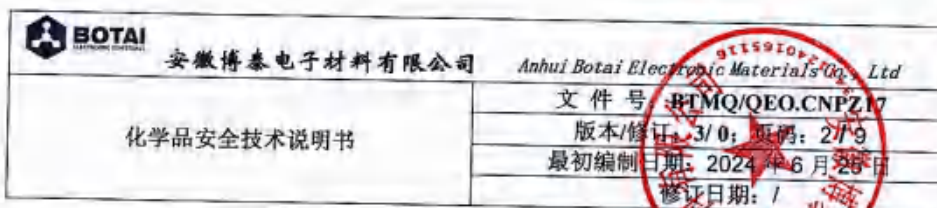 BOTAI
安徽博泰电子材料有限公司
Anhui Botai Electronic Materials Co., Ltd
文 件 号: BTMQ/QEO.CNPZ17
化学品安全技术说明书
版本/修订: 3/ 0; 页码: 2 / 9
最初编制日期: 2024 年 6 月 26 日
修订日期: /